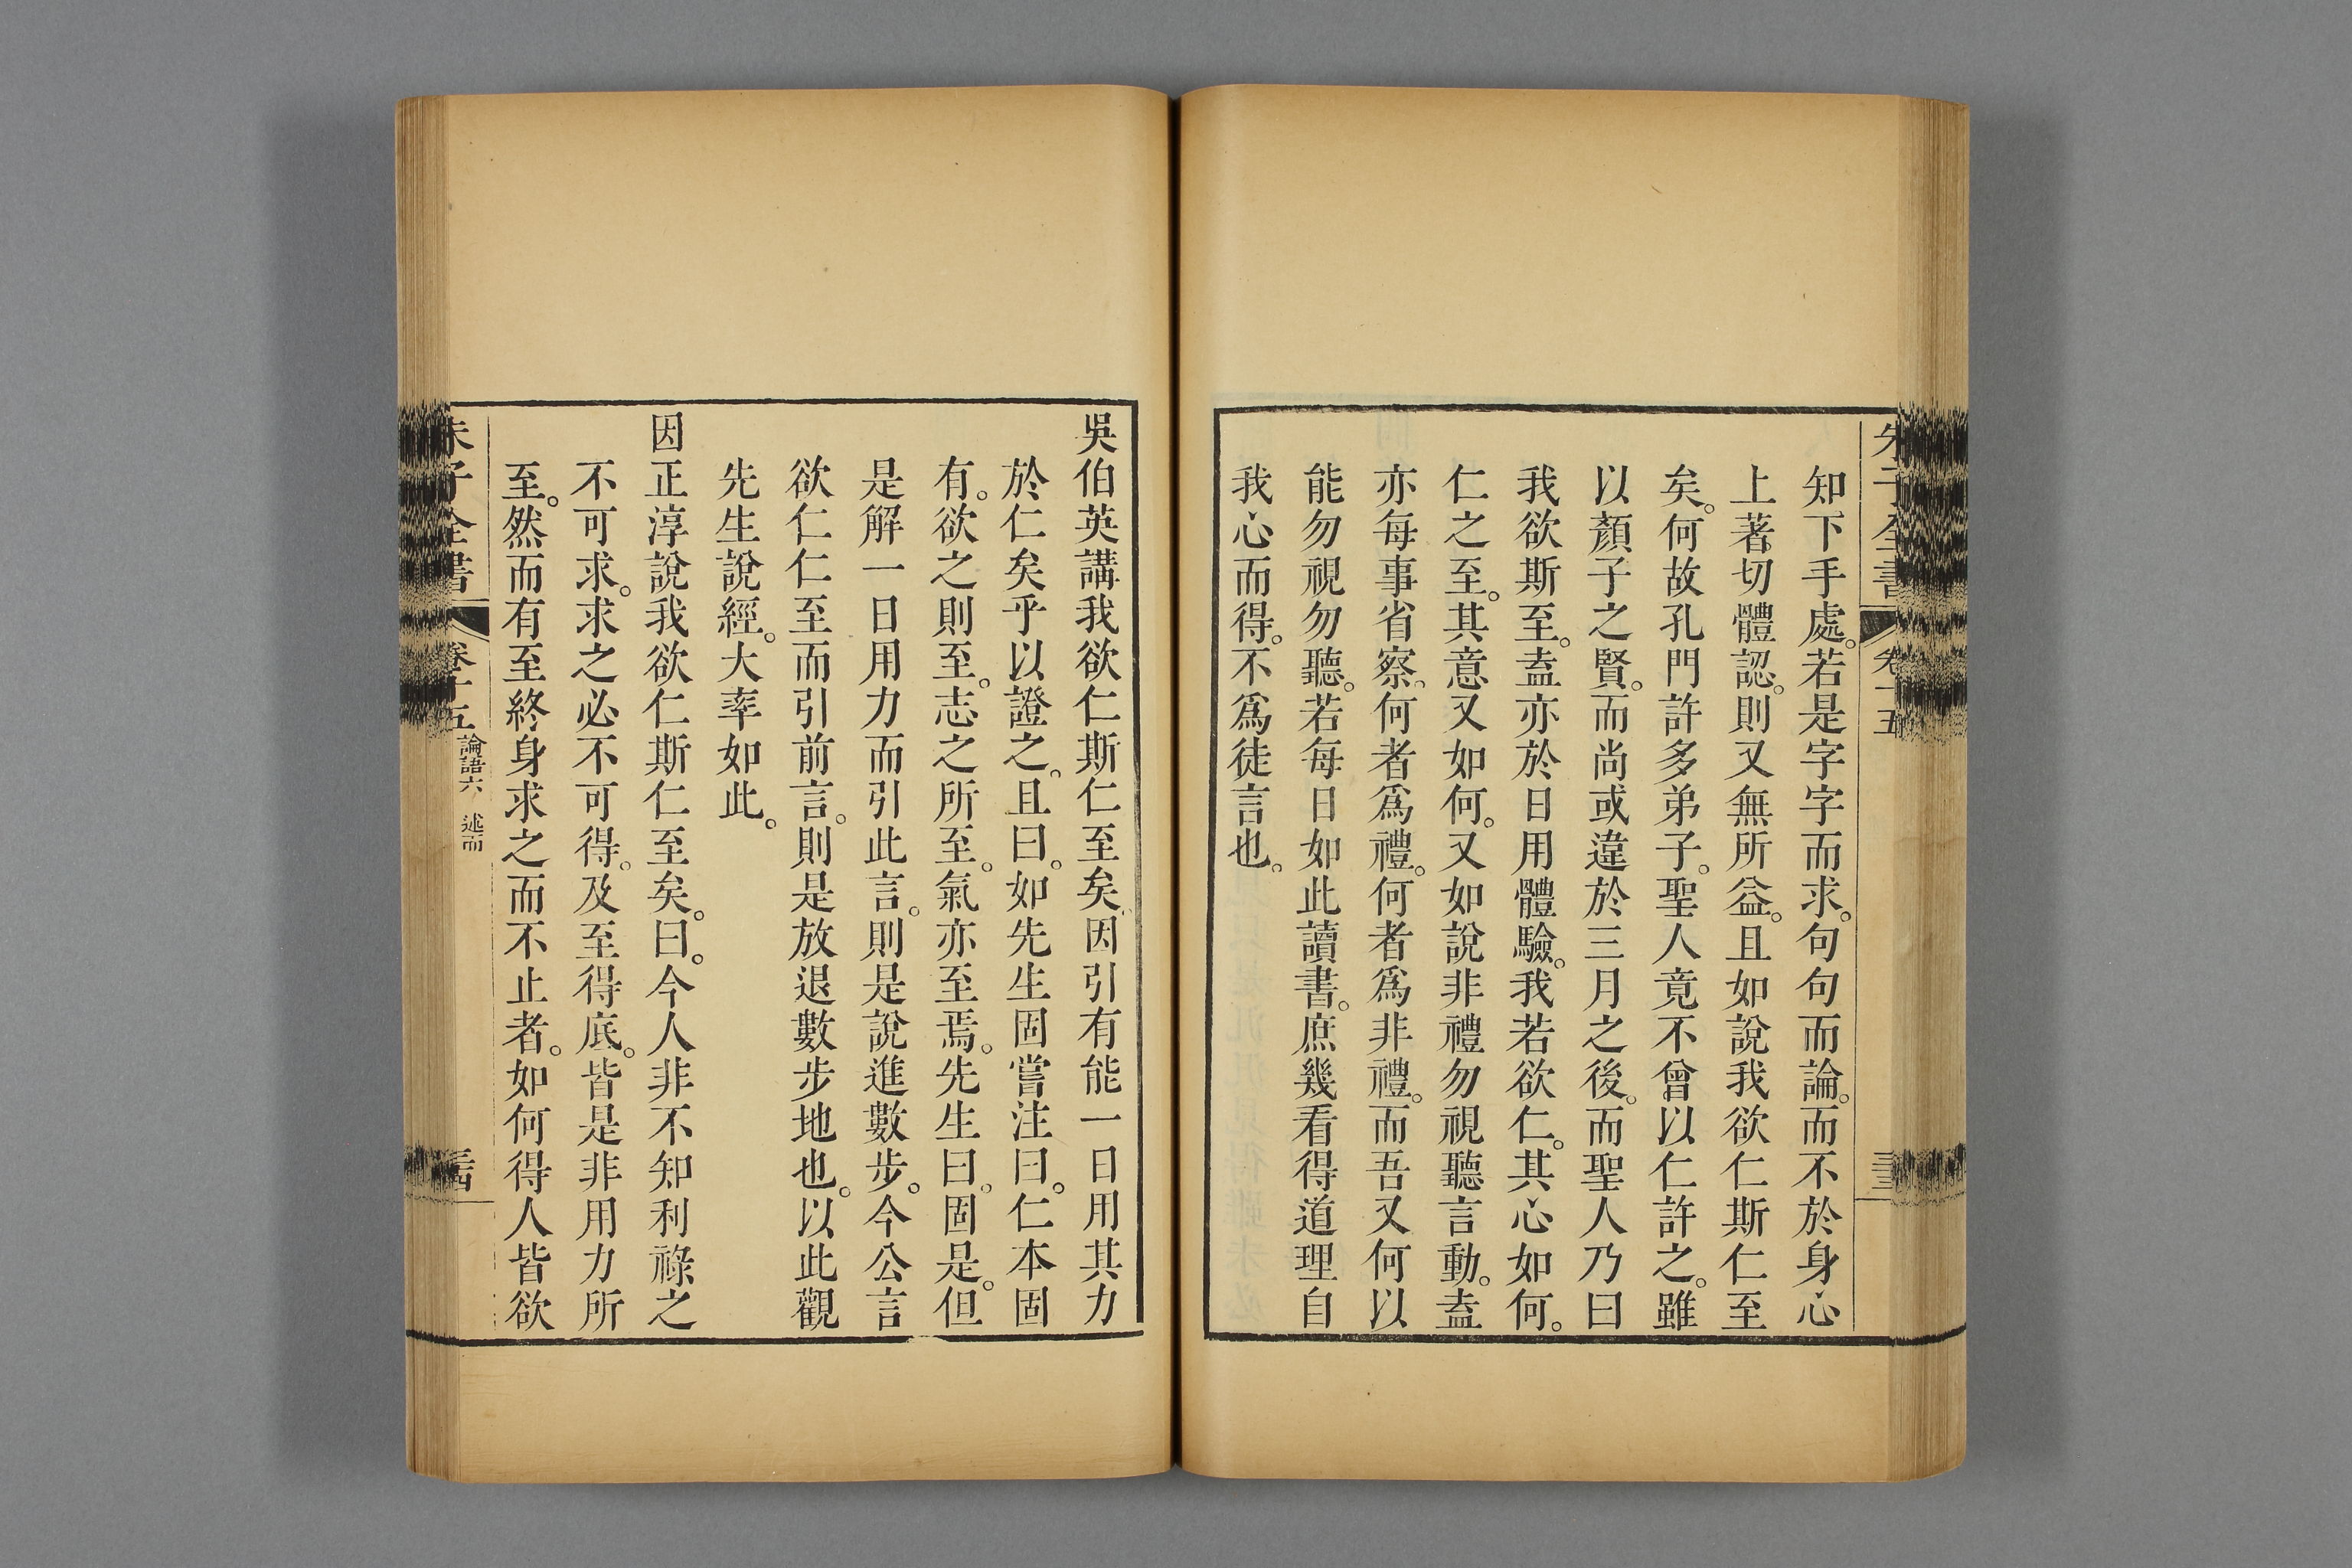 朱子全書 卷十五
知下手處。若是字字而求。句句而論。而不於身心
上著切體認。則又無所益。且如說我欲仁斯仁至
矣。何故孔門許多弟子。聖人竟不曾以仁許之。雖
以顏子之賢。而尚或違於三月之後。而聖人乃曰
我欲斯至。盍亦於日用體驗。我若欲仁。其心如何。
仁之至。其意又如何。又如說非禮勿視聽言動。盍
亦每事省察。何者爲禮。何者爲非禮。而吾又何以
能勿視勿聽。若每日如此讀書。庶幾看得道理自
我心而得。不爲徒言也。
吳伯英講我欲仁斯仁至矣。因引有能一日用其力
於仁矣乎以證之。且曰。如先生固嘗注曰。仁本固
有。欲之則至。志之所至。氣亦至焉。先生曰。固是。但
是解一日用力而引此言。則是說進數步。今公言
欲仁仁至而引前言。則是放退數步地也。以此觀
先生說經。大率如此。
因正淳說我欲仁斯仁至矣。曰。今人非不知利祿之
不可求。求之必不可得。及至得底。皆是非用力所
至。然而有至終身求之而不止者。如何得人皆欲
朱子全書 卷十五 論語六 述而